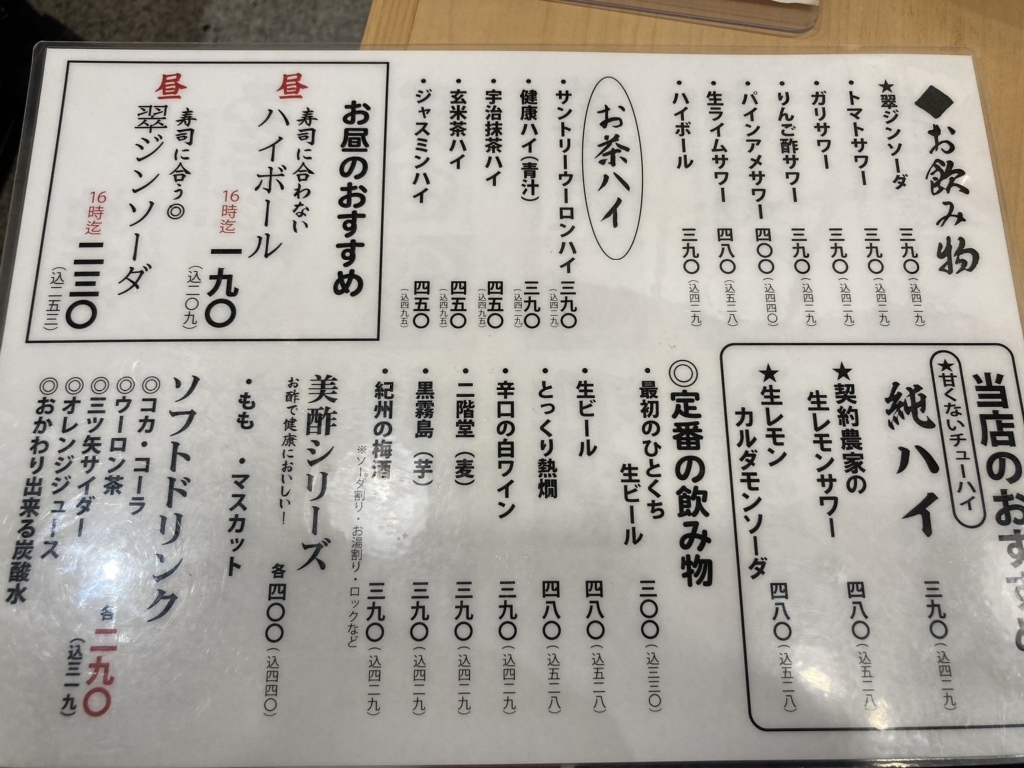 ◆お飲み物
★翠ジンソーダ 三九〇(込四二九)
・トマトサワー 三九〇(込四二九)
・ガリサワー 三九〇(込四二九)
・りんご酢サワー 三九〇(込四二九)
・パインアメサワー 四〇〇(込四四〇)
・生ライムサワー 四八〇(込五二八)
・ハイボール 三九〇(込四二九)
お茶ハイ
・サントリーウーロンハイ 三九〇(込四二九)
・健康ハイ(青汁) 三九〇(込四二九)
・宇治抹茶ハイ 四五〇(込四九五)
・玄米茶ハイ 四五〇(込四九五)
・ジャスミンハイ 四五〇(込四九五)
お昼のおすすめ
昼
寿司に合わない
ハイボール
16時迄 一九〇
(込二〇九)
昼
寿司に合う◎
翠ジンソーダ
16時迄 二三〇
(込二五三)
当店のおすすめ
★甘くないチューハイ
純ハイ 三九〇(込四二九)
★契約農家の
生レモンサワー 四八〇(込五二八)
★生レモン
カルダモンソーダ 四八〇(込五二八)
◎定番の飲み物
・最初のひとくち
生ビール 三〇〇(込三三〇)
・生ビール 四八〇(込五二八)
・とっくり熱燗 四八〇(込五二八)
・辛口の白ワイン 三九〇(込四二九)
・二階堂(麦) 三九〇(込四二九)
・黒霧島(芋) 三九〇(込四二九)
・紀州の梅酒 三九〇(込四二九)
※ソーダ割り・お湯割り・ロックなど
美酢シリーズ
お酢で健康においしい!
各四〇〇(込四四〇)
・もも ・マスカット
ソフトドリンク
◎コカ・コーラ
◎ウーロン茶
◎三ツ矢サイダー
◎オレンジジュース
◎おかわり出来る炭酸水
各二九〇
(込三一九)